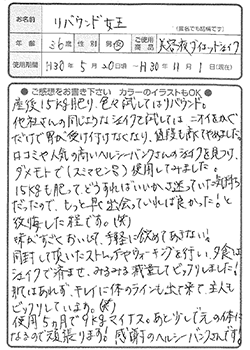 お名前 リバウンド女王
(匿名でも結構です)
年齢 36歳 性別 男・女 ご使用商品 美容液ダイエットシェイク
使用期間 H30年5月20日頃~H30年11月1日(現在)
●ご感想をお書き下さい カラーのイラストもOK●
産後15kg肥り、色々試してはリバウンド。
他社さんの同じようなシェイクを試しては、ニオイをかぐ
だけで胃が受け付けなくなり、値段も高くてやめました。
口コミや人気の高いヘルシーバンクさんのシェイクを見つけ、
ダメモトで(スミマセン💦)使用してみました。
15kgも肥って、どうすればいいか、迷っていた気持ち
だったので、もっと早く出会っていれば良かった!と
後悔した程です。(笑)
味がすごくおいしくて、手軽に飲めてあきない!
同封して頂いたストレッチやウォーキングを行い、夕食は
シェイクで済ませ、みるみる減量してビックリしました!
肌はあれず、キレイに体のラインも出て来て、主人も
ビックリしています。(笑)
使用5ヵ月で9kgマイナス。あと少しで元の体に
なるので頑張ります!感謝のヘルシーバンクさんです!